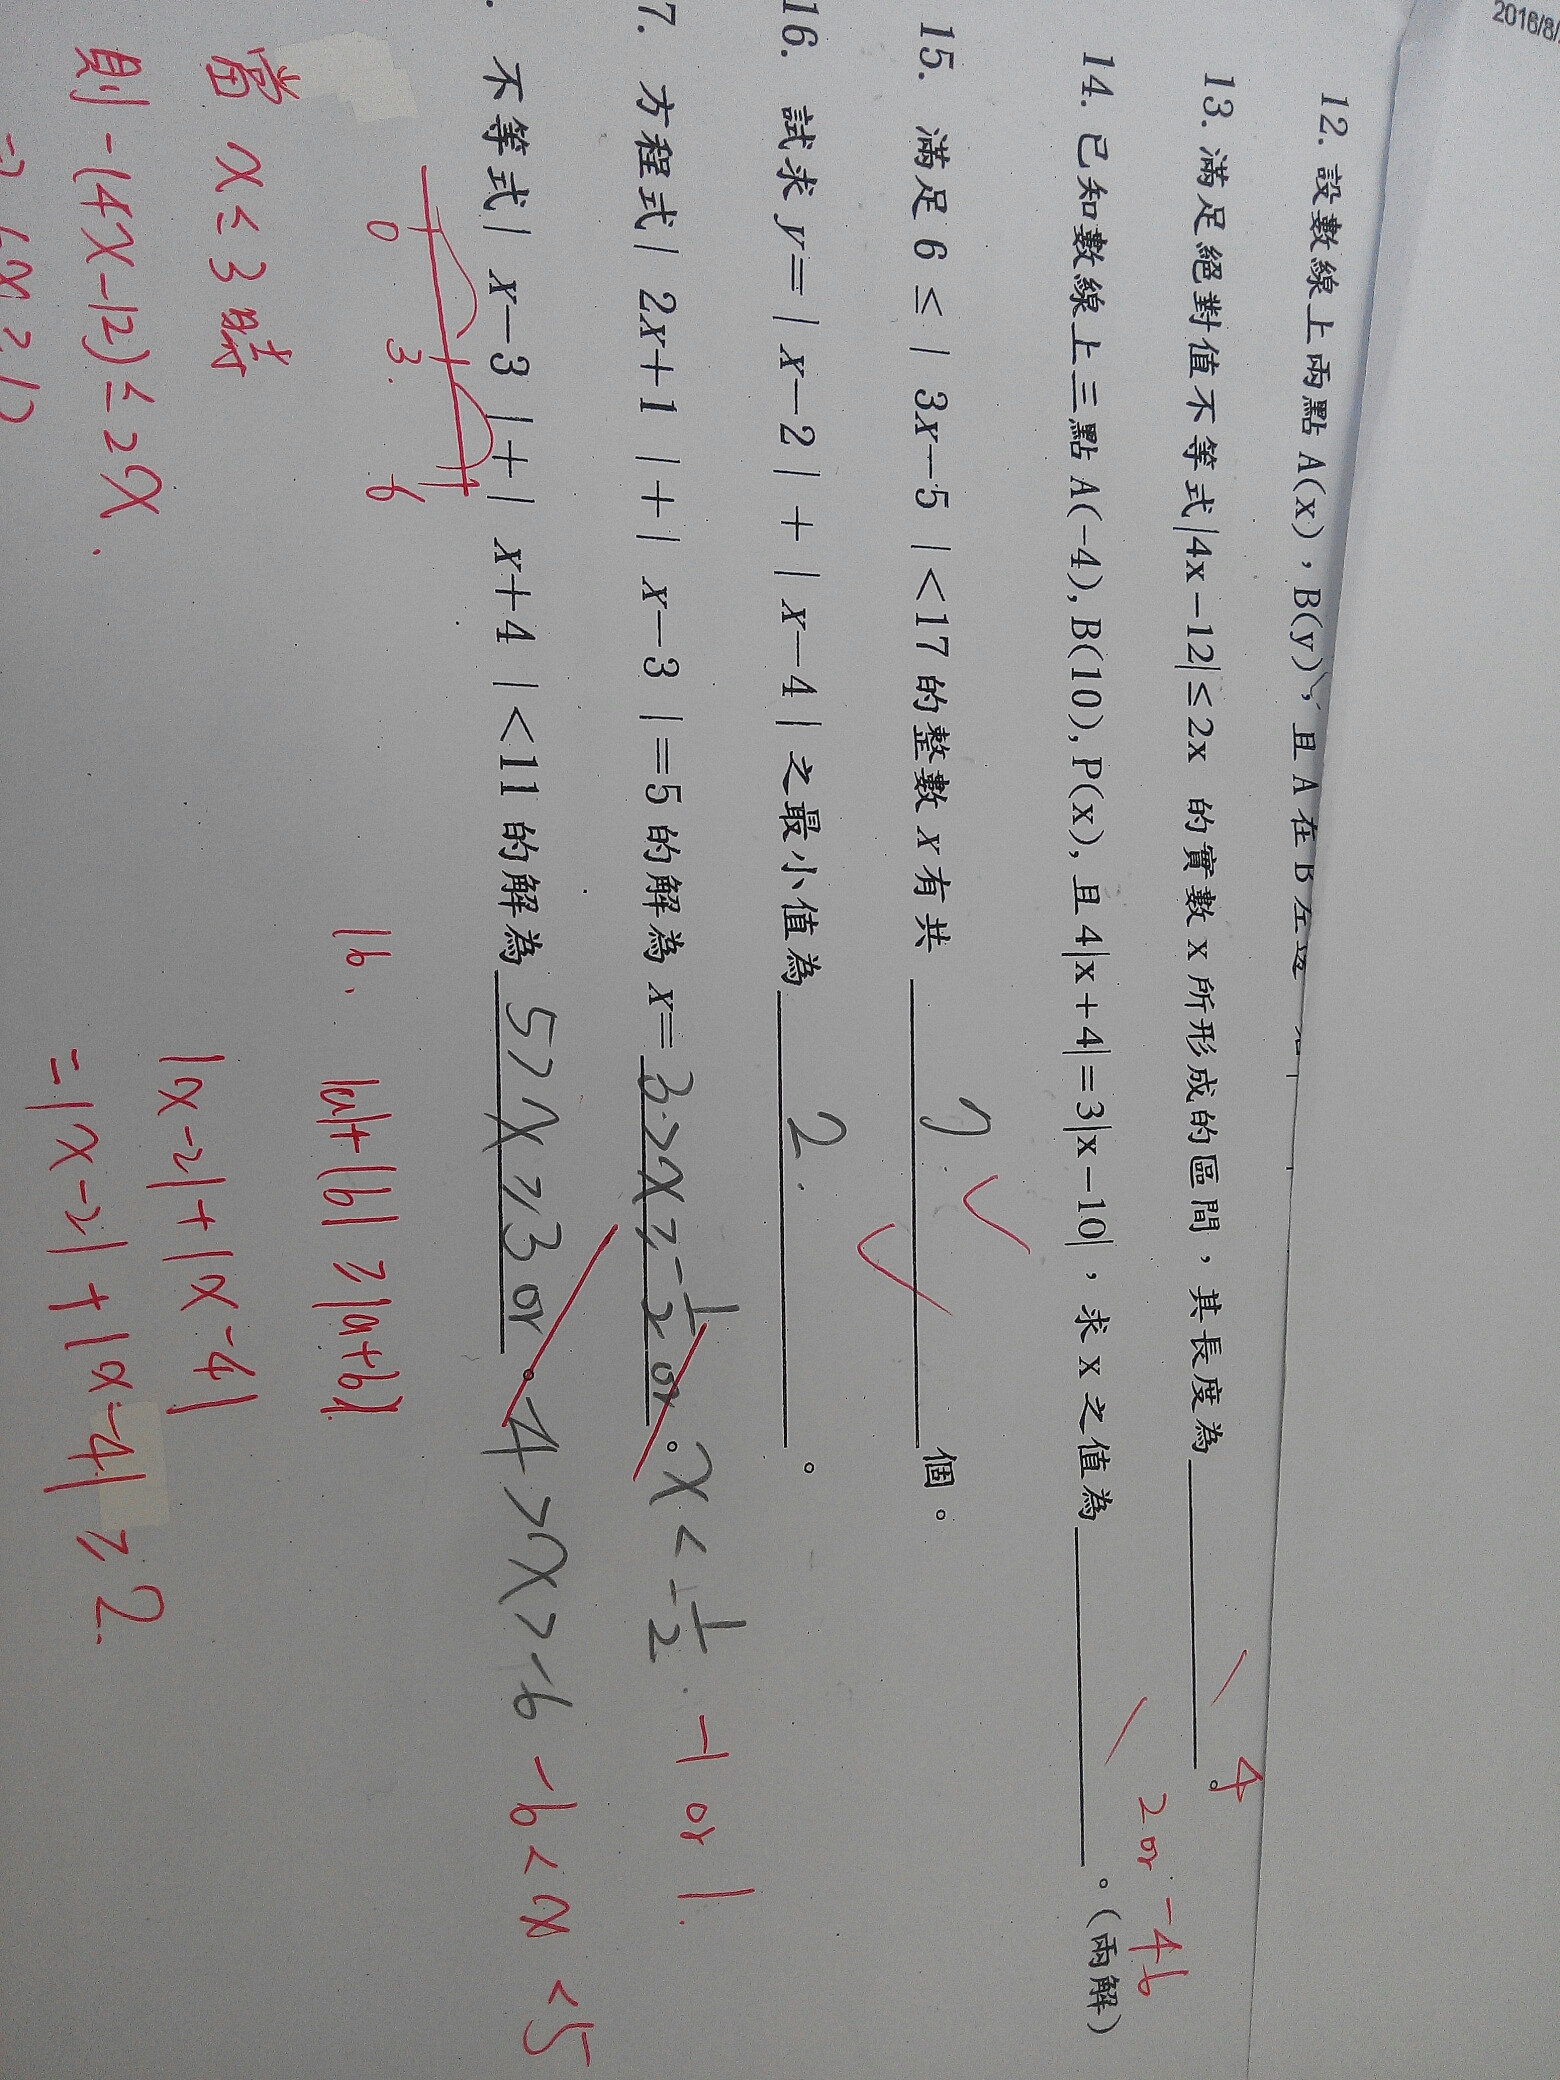 2016/8/
12. 設數線上兩點A(x)，B(y)，且A在B左邊
13. 滿足絕對值不等式|4x－12|≤2x 的實數x所形成的區間，其長度為 。 4
14. 已知數線上三點A(－4), B(10), P(x), 且4|x＋4|＝3|x－10|，求x之值為 。(兩解) 2 or -46
15. 滿足 6 ≤ | 3x－5 | <17 的整數 x 有共 7 個。
16. 試求 y＝| x－2 |＋| x－4 | 之最小值為 2 。
7. 方程式 | 2x＋1 |＋| x－3 |＝5 的解為 x＝ 3>x≥-1/2 or 。x<-1/2 -1 or 1.
. 不等式 | x－3 |＋| x＋4 | <11 的解為 5>x≥3 or 。-4>x>-6 -6<x<5
0 3. 6
16. |a|+|b| ≥ |a+b|
當 x ≤ 3 時
|x-2|+|x-4|
則 -(4x-12) ≤ 2x.
=|x-2|+|x-4| ≥ 2.